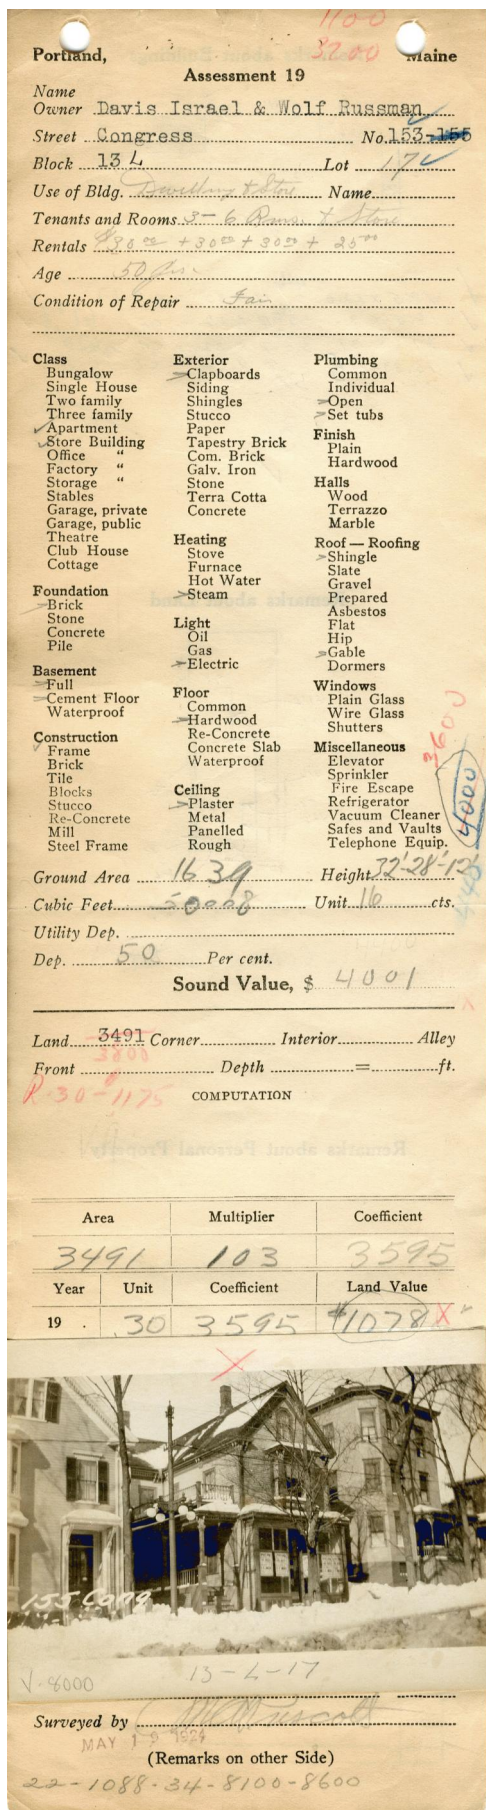 1100
3200
Portland, Maine
Assessment 19
Name
Owner Davis Israel & Wolf Russman
Street Congress No. 153-155
Block 13 L Lot 17
Use of Bldg. Dwelling & Store Name
Tenants and Rooms 3-6 Rms. & Store
Rentals $30.00 + 30.00 + 30.00 + 25.00
Age 50 yrs.
Condition of Repair Fair
Class
Bungalow
Single House
Two family
Three family
Apartment
Store Building
Office "
Factory "
Storage "
Stables
Garage, private
Garage, public
Theatre
Club House
Cottage
Foundation
Brick
Stone
Concrete
Pile
Basement
Full
Cement Floor
Waterproof
Construction
Frame
Brick
Tile
Blocks
Stucco
Re-Concrete
Mill
Steel Frame
Exterior
Clapboards
Siding
Shingles
Stucco
Paper
Tapestry Brick
Com. Brick
Galv. Iron
Stone
Terra Cotta
Concrete
Heating
Stove
Furnace
Hot Water
Steam
Light
Oil
Gas
Electric
Floor
Common
Hardwood
Re-Concrete
Concrete Slab
Waterproof
Ceiling
Plaster
Metal
Panelled
Rough
Plumbing
Common
Individual
Open
Set tubs
Finish
Plain
Hardwood
Halls
Wood
Terrazzo
Marble
Roof — Roofing
Shingle
Slate
Gravel
Prepared
Asbestos
Flat
Hip
Gable
Dormers
Windows
Plain Glass
Wire Glass
Shutters
Miscellaneous
Elevator
Sprinkler
Fire Escape
Refrigerator
Vacuum Cleaner
Safes and Vaults
Telephone Equip.
3600
4000
Ground Area 1639 Height 32'-28'-12'
Cubic Feet 50008 Unit 16 cts.
Utility Dep.
Dep. 50 Per cent.
Sound Value, $ 4001
Land 3491 Corner Interior Alley
3800
Front Depth = ft.
R-30-1175
COMPUTATION
Area Multiplier Coefficient
3491 103 3595
Year Unit Coefficient Land Value
19 . .30 3595 $1078 X
X
155 Cong
V-8000 13-L-17
Surveyed by
MAY 19 1924
(Remarks on other Side)
22-1088-34-8100-8600